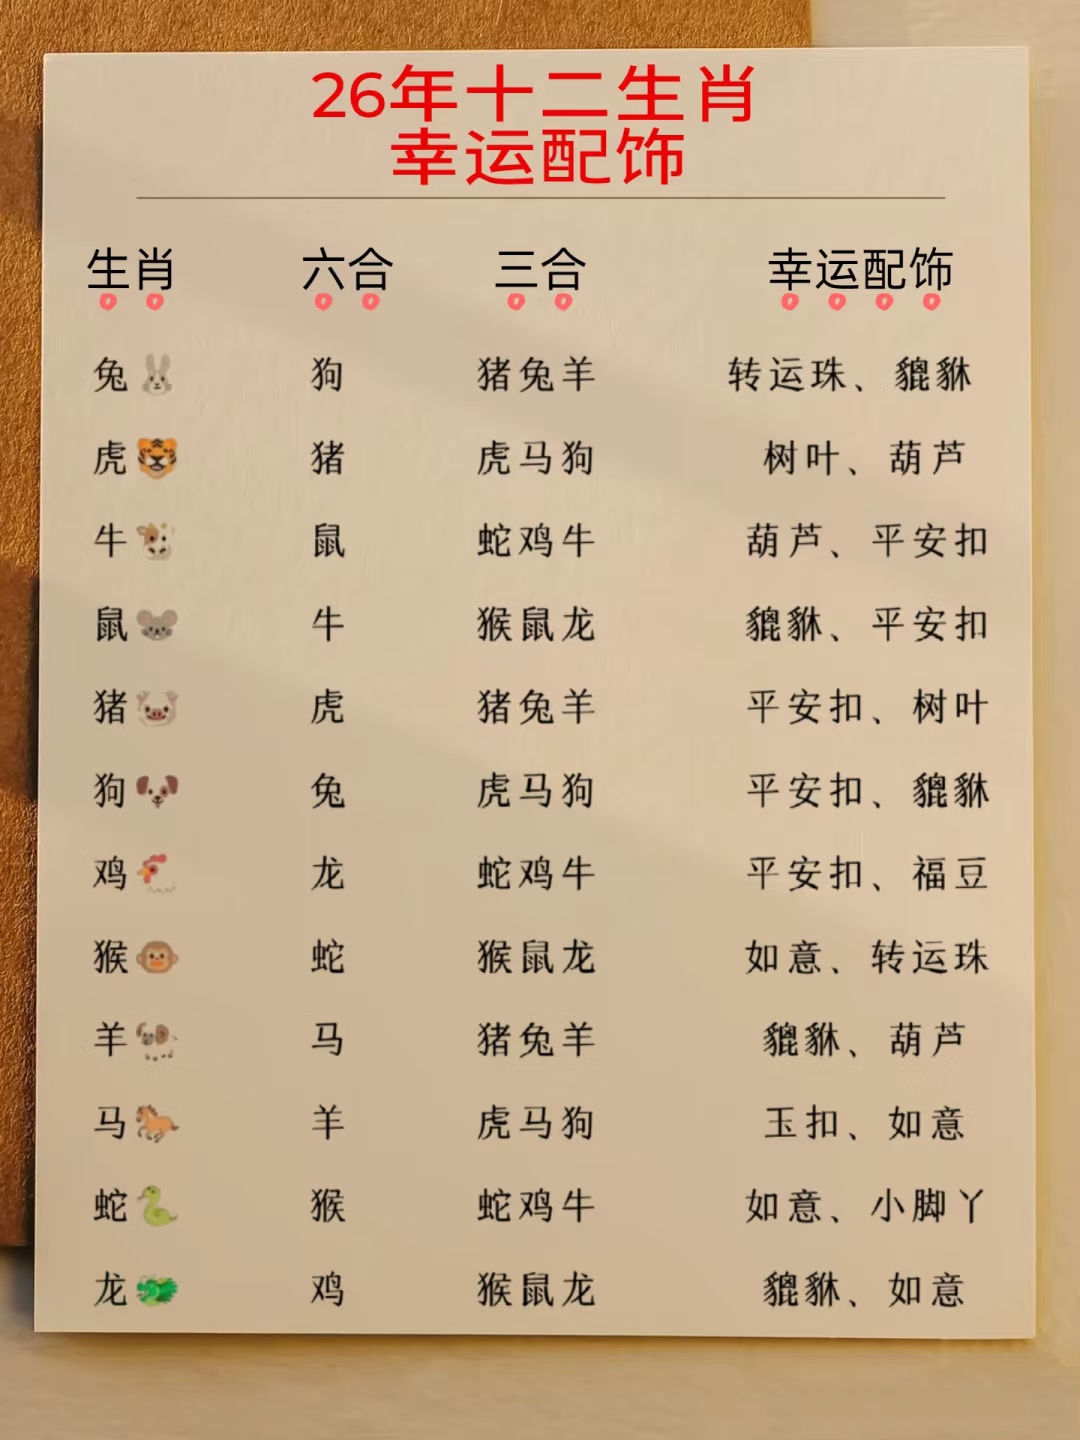 26年十二生肖
幸运配饰
生肖 六合 三合 幸运配饰
兔 狗 猪兔羊 转运珠、貔貅
虎 猪 虎马狗 树叶、葫芦
牛 鼠 蛇鸡牛 葫芦、平安扣
鼠 牛 猴鼠龙 貔貅、平安扣
猪 虎 猪兔羊 平安扣、树叶
狗 兔 虎马狗 平安扣、貔貅
鸡 龙 蛇鸡牛 平安扣、福豆
猴 蛇 猴鼠龙 如意、转运珠
羊 马 猪兔羊 貔貅、葫芦
马 羊 虎马狗 玉扣、如意
蛇 猴 蛇鸡牛 如意、小脚丫
龙 鸡 猴鼠龙 貔貅、如意